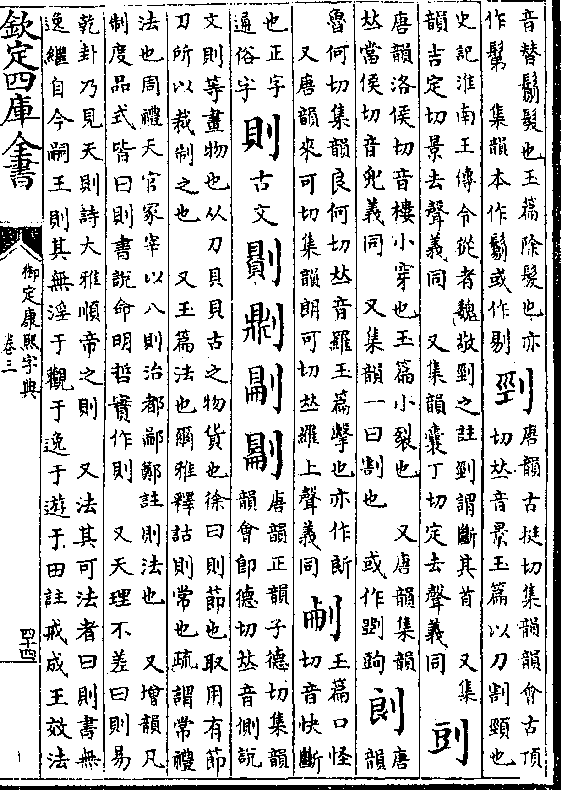 音替鬄髮也玉篇除髮也亦
作鬀 集韻本作鬄或作剔
剄
唐韻古挺切集韻韻會古頂
切𠀤音景玉篇以刀割頸也
史記淮南王傳令從者魏敬剄之註剄謂斷其首 又集
韻吉定切景去聲義同 又集韻囊丁切定去聲義同
剅
唐韻洛侯切音樓小穿也玉篇小裂也 又唐韻集韻
𠀤當侯切音兜義同 又集韻一曰割也 或作
剆
唐
韻
魯何切集韻良何切𠀤音羅玉篇擊也亦作
又唐韻來可切集韻朗可切𠀤羅上聲義同
玉篇口怪
切音快斷
也正字
通俗字
則 古文 𠟭
唐韻正韻子德切集韻
韻會即德切𠀤音側說
文則等畫物也从刀貝貝古之物貨也徐曰則節也取用有節
刀所以裁制之也 又玉篇法也爾雅釋詁則常也疏謂常禮
法也周禮天官冢宰以八則治都鄙鄭註則法也 又增韻凡
制度品式皆曰則書說命明哲實作則 又天理不差曰則易
乾卦乃見天則詩大雅順帝之則 又法其可法者曰則書無
逸繼自今嗣王則其無淫于觀于逸于遊于田註戒成王效法
欽定四庫全書
御定康熙字典
卷三
四十四